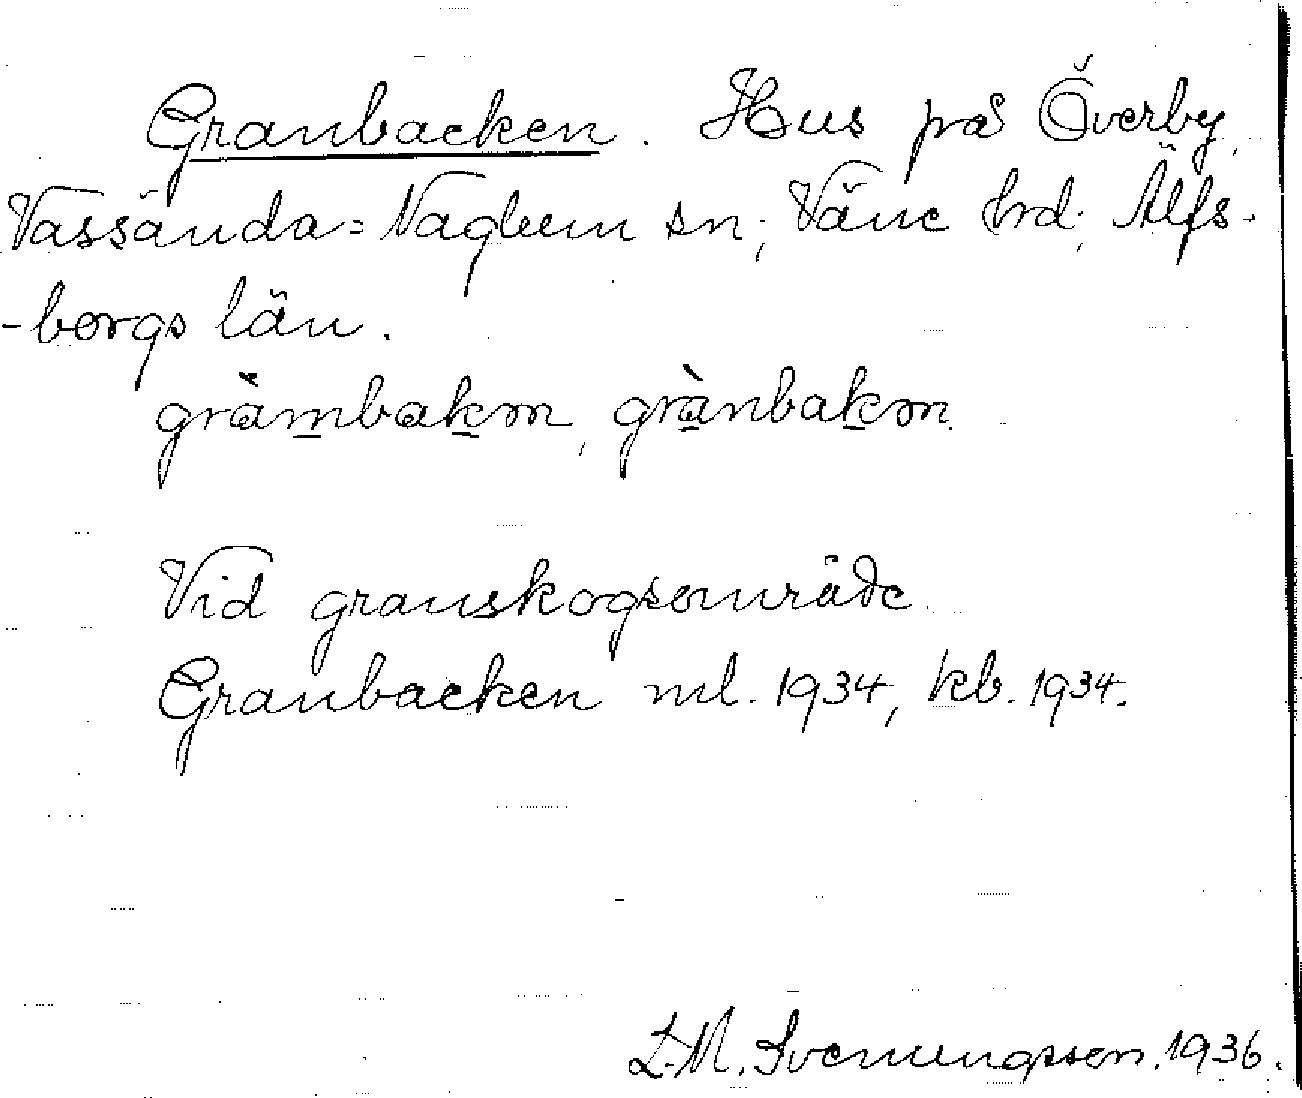 Granbacken. Hus på Överby,
Vassända=Naglum sn; Väne hrd; Älfs-
-borgs län.
gràmbakɔn, grànbakɔn.
Vid granskogsområde.
Granbacken ml. 1934, kb. 1934.
L.M. Svenungsson. 1936.